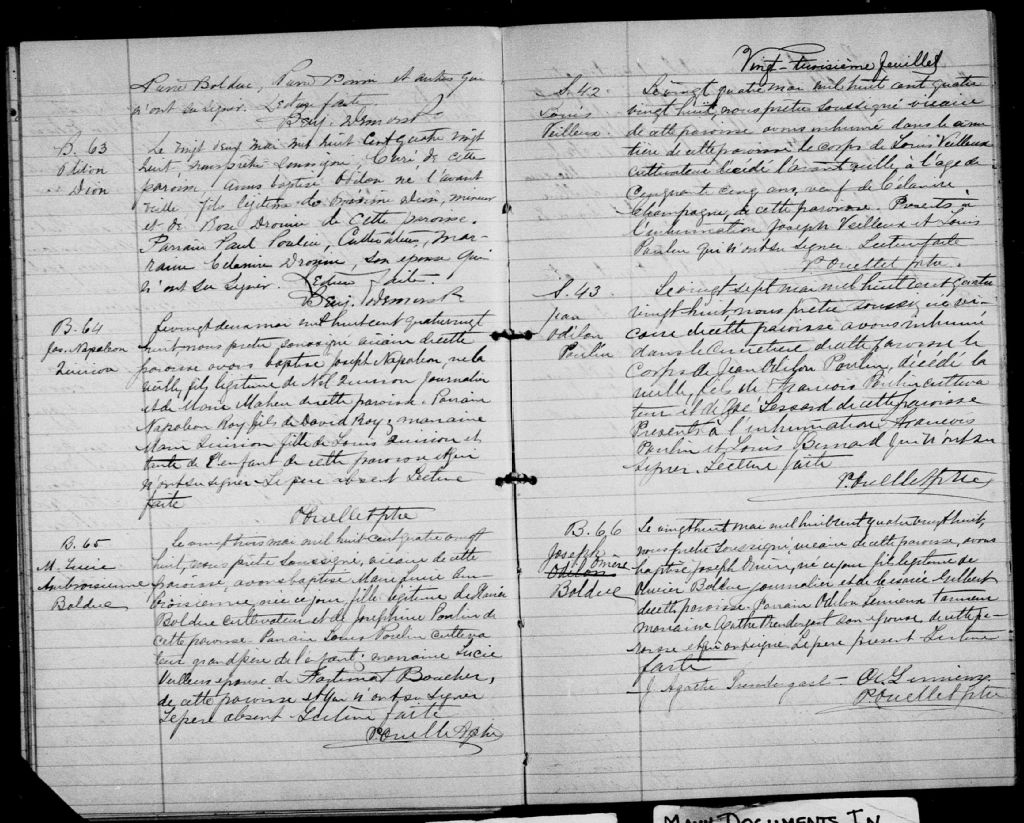 Pierre Bolduc, et autres qui
n'ont su signer. Lecture faite
Benj. Demers Ptr
B. 63
Odilon
Dion
Le vingt deux mai mil huit Cent quatre vingt
huit, nous prêtre soussigné, Curé de cette
paroisse, avons baptisé Odilon né l'avant
veille, fils légitime de Onésime Dion, mineur
et de Rose Drouin de Cette paroisse.
Parrain Paul Poulin, Cultivateur, mar-
raine Délanire Drouin, son épouse qui
n'ont su signer. Lecture faite.
Benj. Demers Ptr
B. 64
Jos. Napoleon
Quirion
Le vingt deux mai mil huit cent quatre vingt
huit, nous prêtre soussigné vicaire de cette
paroisse avons baptisé Joseph Napoléon, né la
veille, fils légitime de Nol Quirion journalier
et de Marie Maheu de cette paroisse. Parrain
Napoleon Roy fils de David Roy; marraine
Marie Quirion fille de Louis Quirion et
tante de l'enfant de cette paroisse et qui
n'ont su signer. Le père absent Lecture
faite
P. Ouellet ptre
B. 65
M. Lucie
Ambroisienne
Bolduc
Le vingt trois mai mil huit cent quatre vingt
huit, nous prêtre soussigné, vicaire de cette
paroisse avons baptisé Marie Lucie Am-
broisienne, née ce jour, fille légitime de
Bolduc cultivateur et de Joséphine Poulin de
cette paroisse. Parrain Louis Poulin cultiva
teur grand père de l'enfant; marraine Lucie
Veilleux épouse de Fortunat Boucher,
de cette paroisse et qui n'ont su signer
Le père absent Lecture faite
P. Ouellet Ptre
Vingt-troisième feuillet
S. 42
Louis
Veilleux
Le vingt quatre mai mil huit cent quatre
vingt huit, nous prêtre soussigné vicaire
de cette paroisse avons inhumé dans le cime
tière de cette paroisse le corps de Louis Veilleux
cultivateur décédé l'avant veille à l'age de
cinquante cinq ans, veuf de Délanire
Champagne, de cette paroisse. Présents à
l'inhumation Joseph Veilleux et Louis
Poulin qui n'ont su signer Lecture faite
P. Ouellet ptre.
S. 43
Jean
Odilon
Poulin
Le vingt sept mai mil huit cent quatre
vingt huit, nous prêtre soussigné vi-
caire de cette paroisse avons inhumé
dans le cimetière de cette paroisse le
corps de Jean Odilon Poulin, décédé la
veille, fils de Francois Poulin cultiva
teur et de Zoé Lessard de cette paroisse
Présents à l'inhumation Francois
Poulin et Louis Bernard qui n'ont su
signer. Lecture faite
P. Ouellet Ptre
B. 66
Joseph Omère
Odilon
Bolduc
Le vingt huit mai mil huit cent quatre vingt huit,
nous prêtre soussigné vicaire de cette paroisse, avons
baptisé Joseph Omère, né ce jour fils légitime de
Olivier Bolduc journalier et de Césarie Guilbert
de cette paroisse. Parrain Odilon Lemieux tanneur
marraine Agathe Prendergast son épouse, de cette pa-
roisse et qui ont signé. Le père présent Lecture
faite
J. Agathe Prendergast - Od Lemieux
P. Ouellet Ptre
MANY DOCUMENTS IN